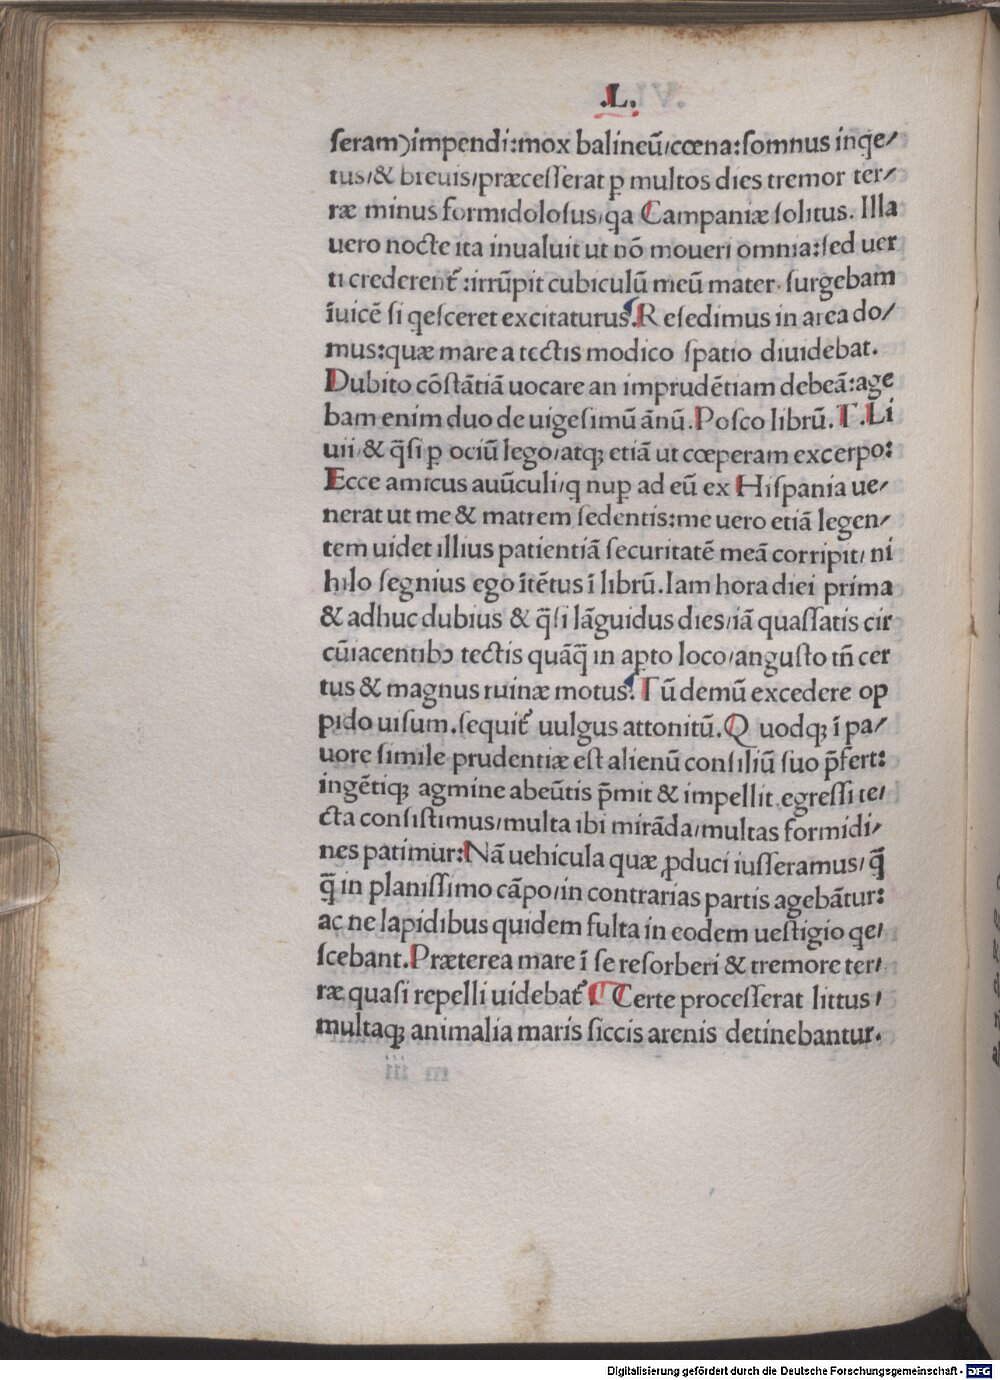 .L.
ſeram)impendi:mox balineū/cœna:ſomnus inqe/
tus/& breuis/præceſſerat p̲ multos dies tremor ter/
ræ minus formidoloſus/qa Campaniæ ſolitus. Illa
uero nocte ita inualuit ut nō moueri omnia:ſed uer
ti crederent᷑ :irrūpit cubiculū meū mater. ſurgebam
īuicē ſi qeſceret excitaturus. Reſedimus in area do/
mus:quæ mare a tectis modico ſpatio diuidebat.
Dubito cōſtātiā uocare an imprudētiam debeā:age
bam enim duo de uigeſimū ānū. Poſco librū. T. Li
uii & q̄ſi p̲ ociū lego/atqꝫ etiā ut cœperam excerpo:
Ecce amicus auūculi/q nup̲ ad eū ex Hiſpania ue/
nerat ut me & matrem ſedentis:me uero etiā legen/
tem uidet illius patientiā ſecuritatē meā corripit/ ni
hilo ſegnius ego ītētus ī librū. Iam hora diei prima
& adhuc dubius & q̄ſi lāguidus dies/iā quaſſatis cir
cūiacentibꝰ tectis quāq̄ in ap̲to loco/anguſto tn̄ cer
tus & magnus ruinæ motus. Tū demū excedere op
pido uiſum. ſequit᷑ uulgus attonitū. Quodqꝫ ī pa/
uore ſimile prudentiæ eſt alienū conſiliū ſuo p̄fert:
ingētiqꝫ agmine abeūtis p̄mit & impellit egreſſi te/
cta conſiſtimus/multa ibi mirāda/multas formidi/
nes patimur:Nā uehicula quæ ꝓduci iuſſeramus/ q̄
q̄ in planiſſimo cāpo/in contrarias partis agebātur:
ac ne lapidibus quidem fulta in eodem ueſtigio qe/
ſcebant. Præterea mare ī ſe reſorberi & tremore ter/
ræ quaſi repelli uidebat᷑ Certe proceſſerat littus /
multaqꝫ animalia maris ſiccis arenis detinebantur.
Digitalisierung gefördert durch die Deutsche Forschungsgemeinschaft - DFG